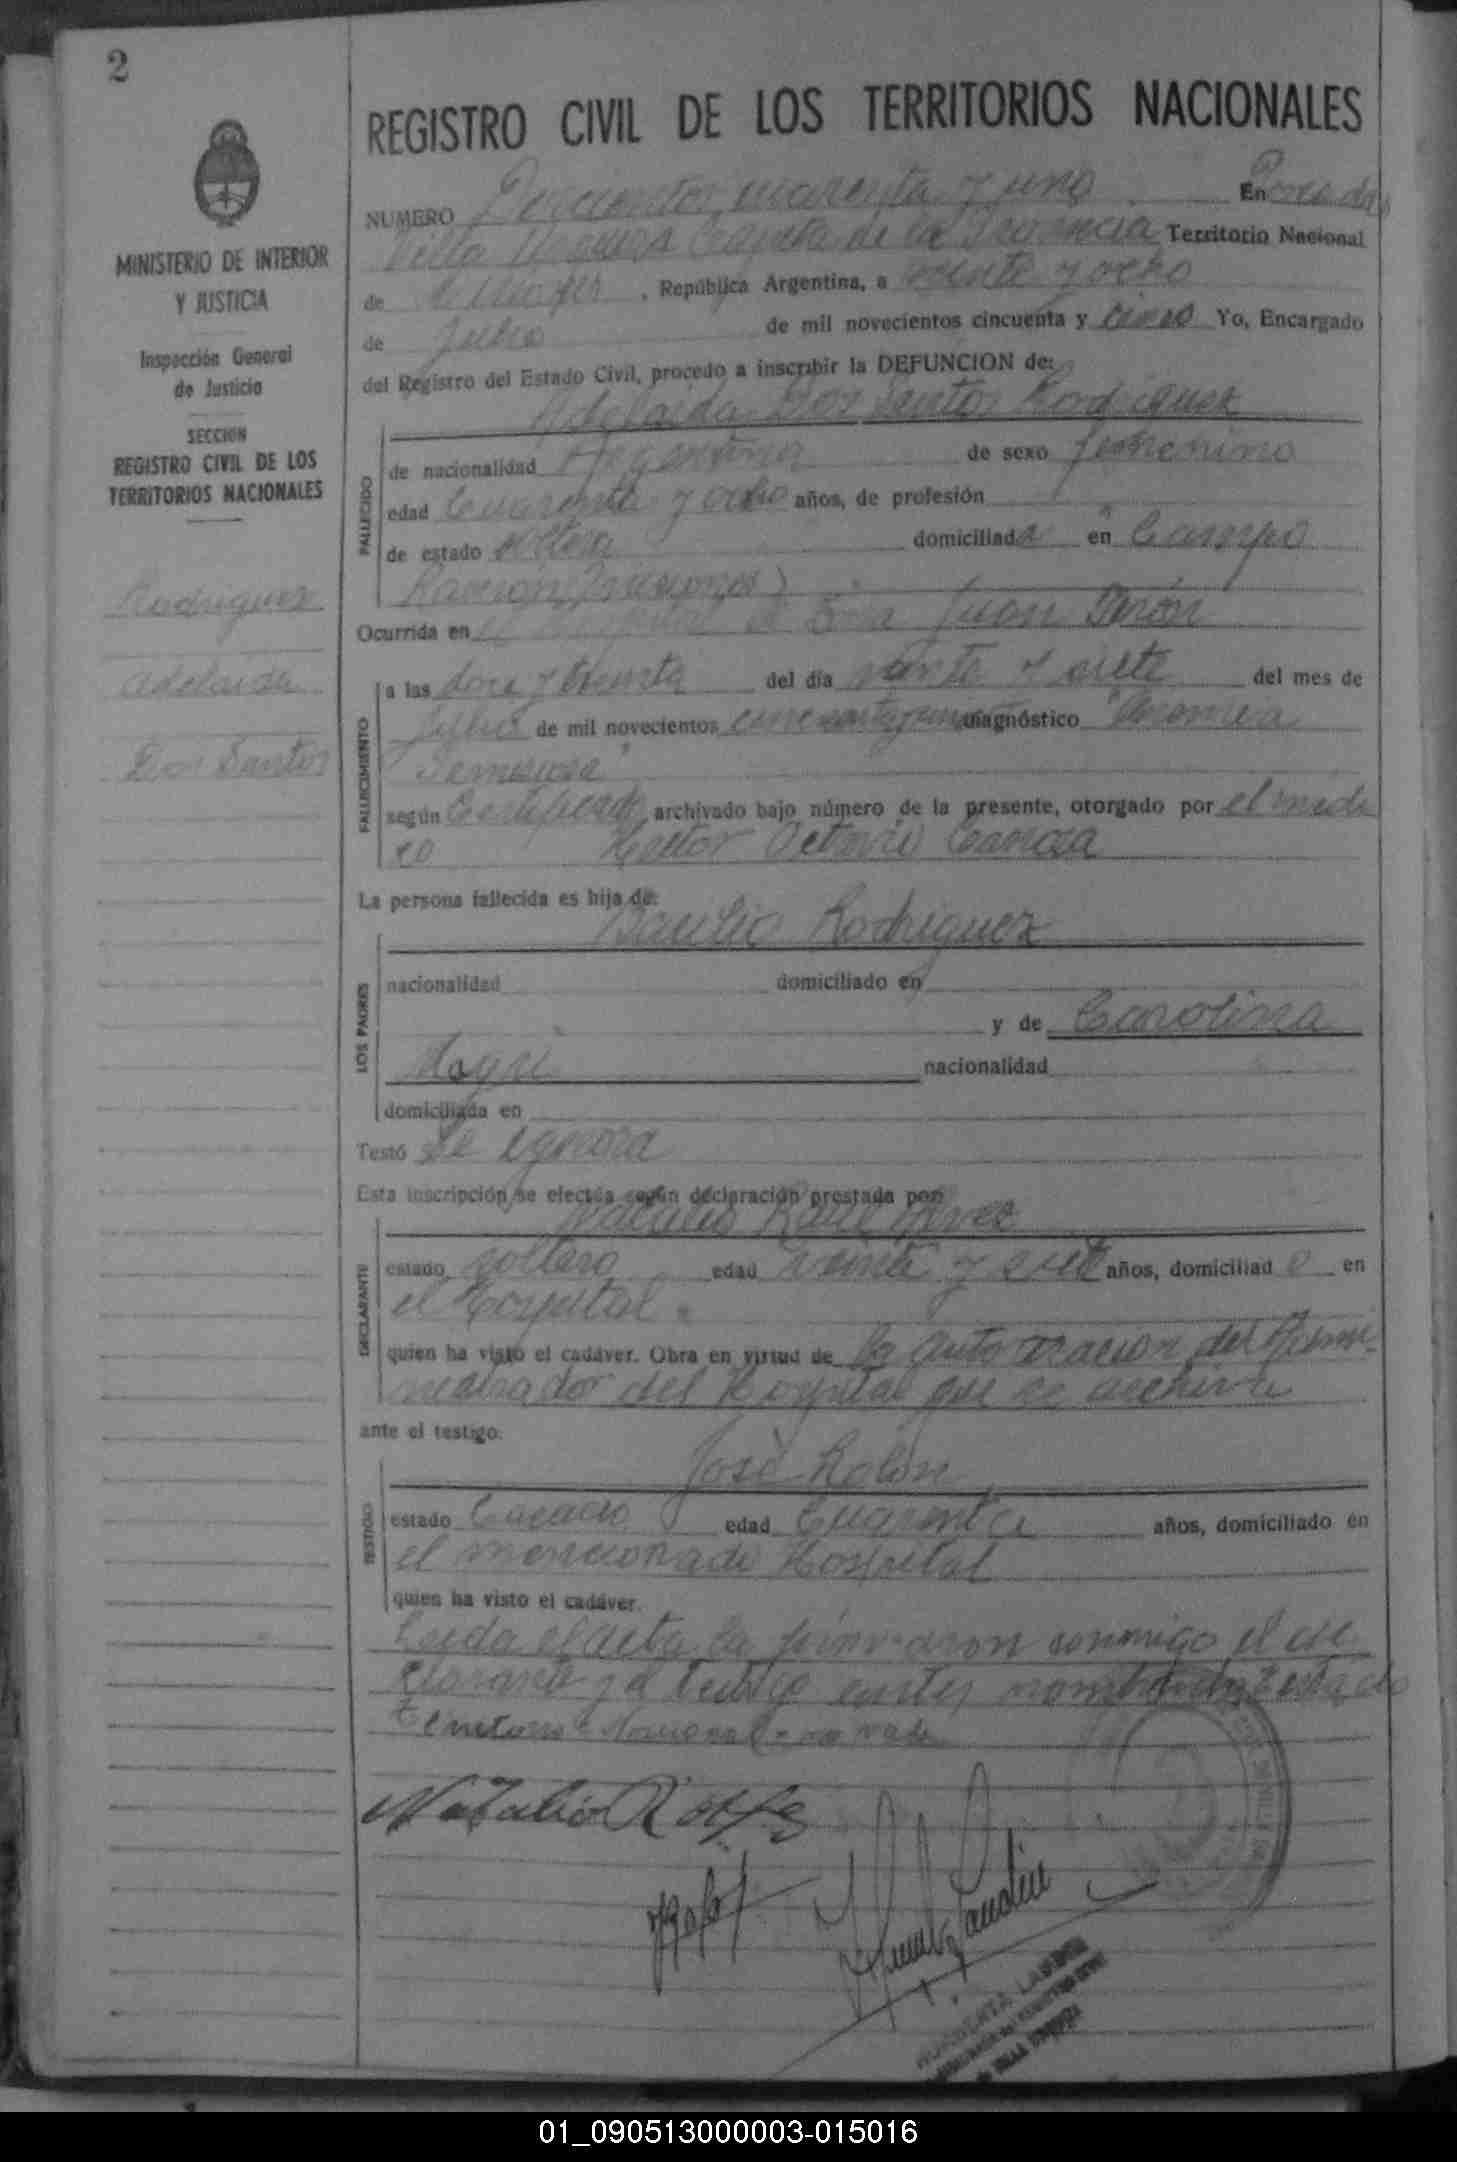 2
MINISTERIO DE INTERIOR
Y JUSTICIA
Inspección General
de Justicia
SECCION
REGISTRO CIVIL DE LOS
TERRITORIOS NACIONALES
Rodriguez
Adelaida
Dos Santos
REGISTRO CIVIL DE LOS TERRITORIOS NACIONALES
NUMERO Doscientos cuarenta y uno En Posadas
Villa de la Provincia Territorio Nacional
de Misiones, República Argentina, a veinte y ocho
de Julio de mil novecientos cincuenta y cinco Yo, Encargado
del Registro del Estado Civil, procedo a inscribir la DEFUNCION de:
Adelaida Dos Santos Rodriguez
FALLECIDO
de nacionalidad Argentina de sexo femenino
edad Cuarenta y ocho años, de profesión
de estado soltera domiciliada en Campo
(Misiones)
Ocurrida en el Hospital Juan Perón
FALLECIMIENTO
a las doce y treinta del día veinte y siete del mes de
Julio de mil novecientos diagnóstico
según Certificado archivado bajo número de la presente, otorgado por el médi
co Hector Octavio
La persona fallecida es hija de:
LOS PADRES
Basilio Rodriguez
nacionalidad domiciliado en
y de Carolina
nacionalidad
domiciliada en
Testó Se ignora
Esta inscripción se efectúa según declaración prestada por:
DECLARANTE
Natalio
estado soltero edad veinte y siete años, domiciliado en
el Hospital.
quien ha visto el cadáver. Obra en virtud de la autorización del Admi-
nistrador del Hospital que se archiva
ante el testigo:
TESTIGO
José Rolón
estado Casado edad Cuarenta años, domiciliado en
el mencionado Hospital
quien ha visto el cadáver.
Leida el acta la firmaron conmigo el de
clarante y el testigo antes
Territorio Nacional no vale
Natalio R.
01_090513000003-015016